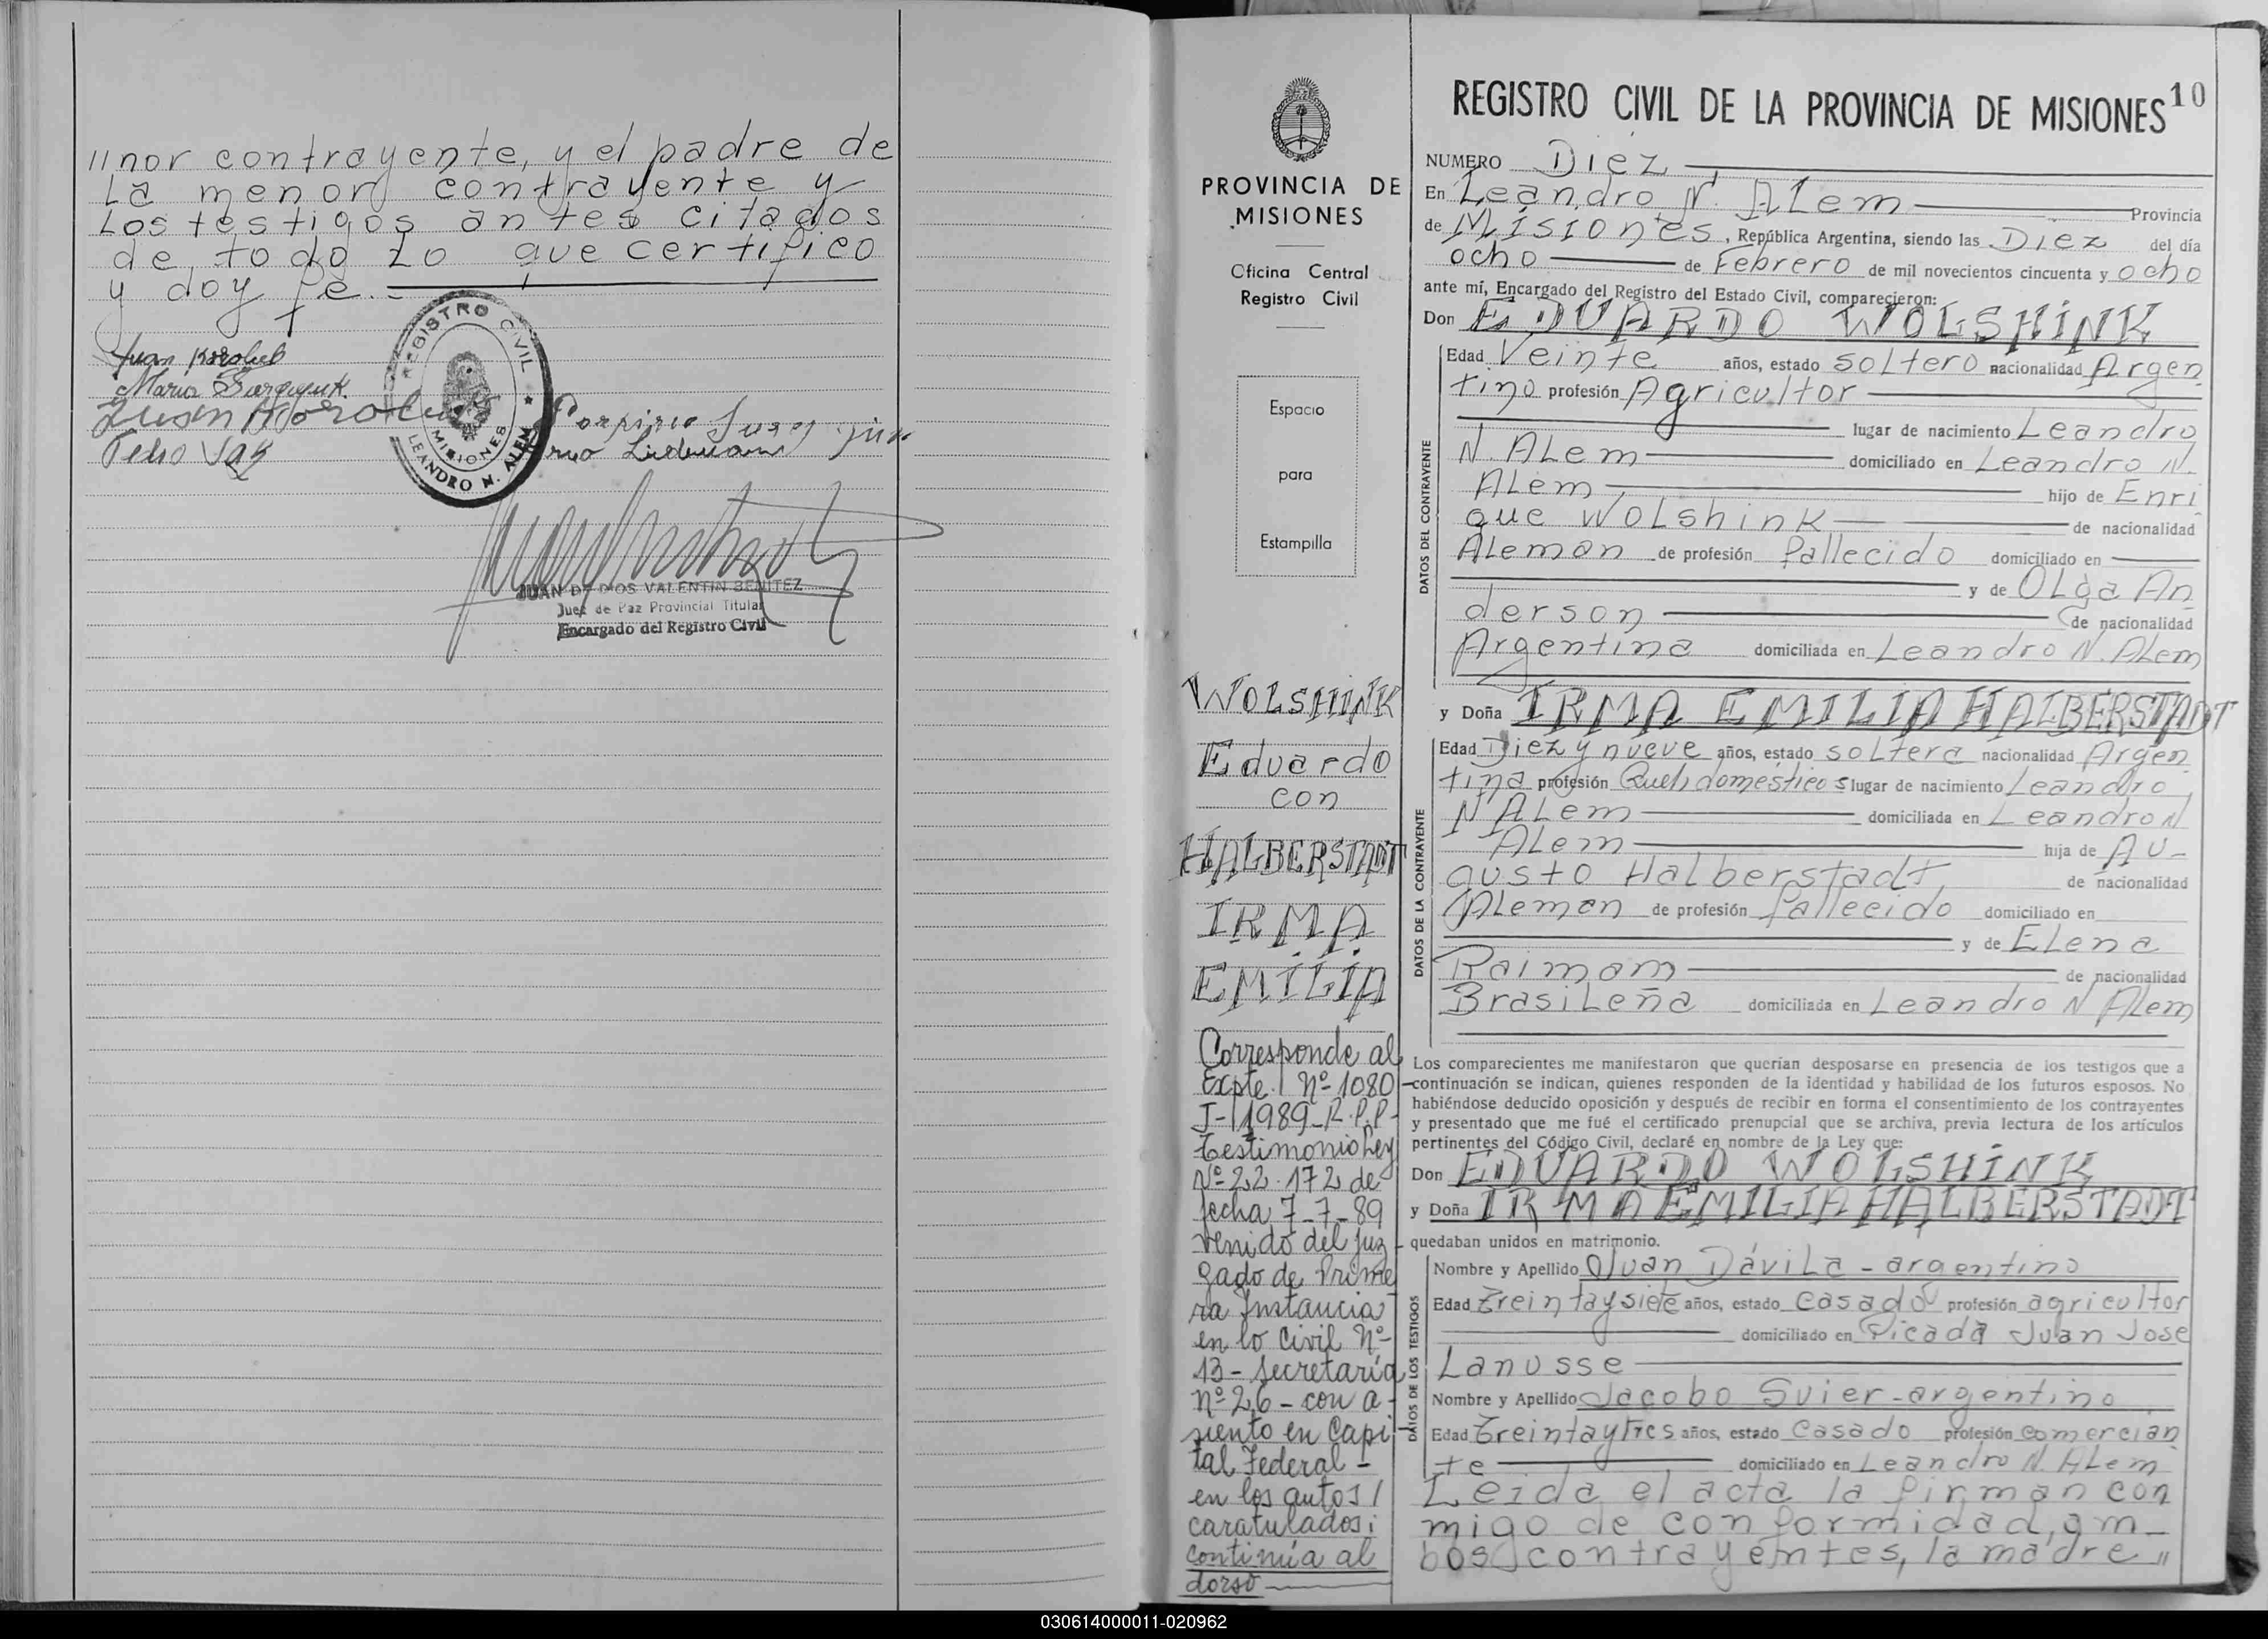 11nor contrayente, y el padre de
La menor contrayente y
Los testigos antes citados
de todo Lo que certifico
y doy fe.-
Juan Korolub
Maria
Juan Korolu
Pedro
Porpirio
Liduam
REGISTRO CIVIL
MISIONES
LEANDRO N. ALEM
JUAN DE DIOS VALENTIN BENITEZ
Juez de Paz Provincial Titular
Encargado del Registro Civil
PROVINCIA DE
MISIONES
Oficina Central
Registro Civil
Espacio
para
Estampilla
WOLSHINK
Eduardo
con
HALBERSTADT
IRMA
EMILIA
Corresponde al
Expte. Nº 1080
J-1989-R.P.P-
testimonio Ley
Nº 22.172 de
fecha 7-7-89
venido del juz-
gado de Prime
ra Instancia
en lo Civil Nº-
13- secretaría
nº 26- con a-
siento en Capi-
tal Federal -
en los autos /
caratulados:
continúa al
dorso
REGISTRO CIVIL DE LA PROVINCIA DE MISIONES 10
NUMERO Diez
En Leandro N. ALem Provincia
de Misiones, República Argentina, siendo las Diez del día
ocho de Febrero de mil novecientos cincuenta y ocho
ante mí, Encargado del Registro del Estado Civil, comparecieron:
Don EDUARDO WOLSHINK
DATOS DEL CONTRAYENTE
Edad Veinte años, estado soltero nacionalidad Argen
tino profesión Agricultor
lugar de nacimiento Leandro
N. ALem domiciliado en Leandro N.
ALem hijo de Enri
que Wolshink de nacionalidad
Aleman de profesión fallecido domiciliado en
y de OLga An
derson de nacionalidad
Argentina domiciliada en Leandro N. ALem
y Doña IRMA EMILIA HALBERSTADT
DATOS DE LA CONTRAYENTE
Edad Diez y nueve años, estado soltera nacionalidad Argen
tina profesión Queh domesticos lugar de nacimiento Leandro
N ALem domiciliada en Leandro N
ALem hija de Au-
gusto Halberstadt, de nacionalidad
Aleman de profesión fallecido domiciliado en
y de ELena
Raimam de nacionalidad
BrasiLeña domiciliada en Leandro N ALem
Los comparecientes me manifestaron que querían desposarse en presencia de los testigos que a
continuación se indican, quienes responden de la identidad y habilidad de los futuros esposos. No
habiéndose deducido oposición y después de recibir en forma el consentimiento de los contrayentes
y presentado que me fué el certificado prenupcial que se archiva, previa lectura de los artículos
pertinentes del Código Civil, declaré en nombre de la Ley que:
Don EDUARDO WOLSHINK
y Doña IRMA EMILIA HALBERSTADT
quedaban unidos en matrimonio.
DATOS DE LOS TESTIGOS
Nombre y Apellido Juan DáviLa - argentino
Edad treintaysiete años, estado casado profesión agricultor
domiciliado en Picada Juan Jose
Lanusse
Nombre y Apellido Jacobo Svier - argentino
Edad treintaytres años, estado casado profesión comercian
te domiciliado en Leandro N. ALem
Leida el acta la firman con
migo de conformidad, am-
bos contrayentes, la madre 11
030614000011-020962